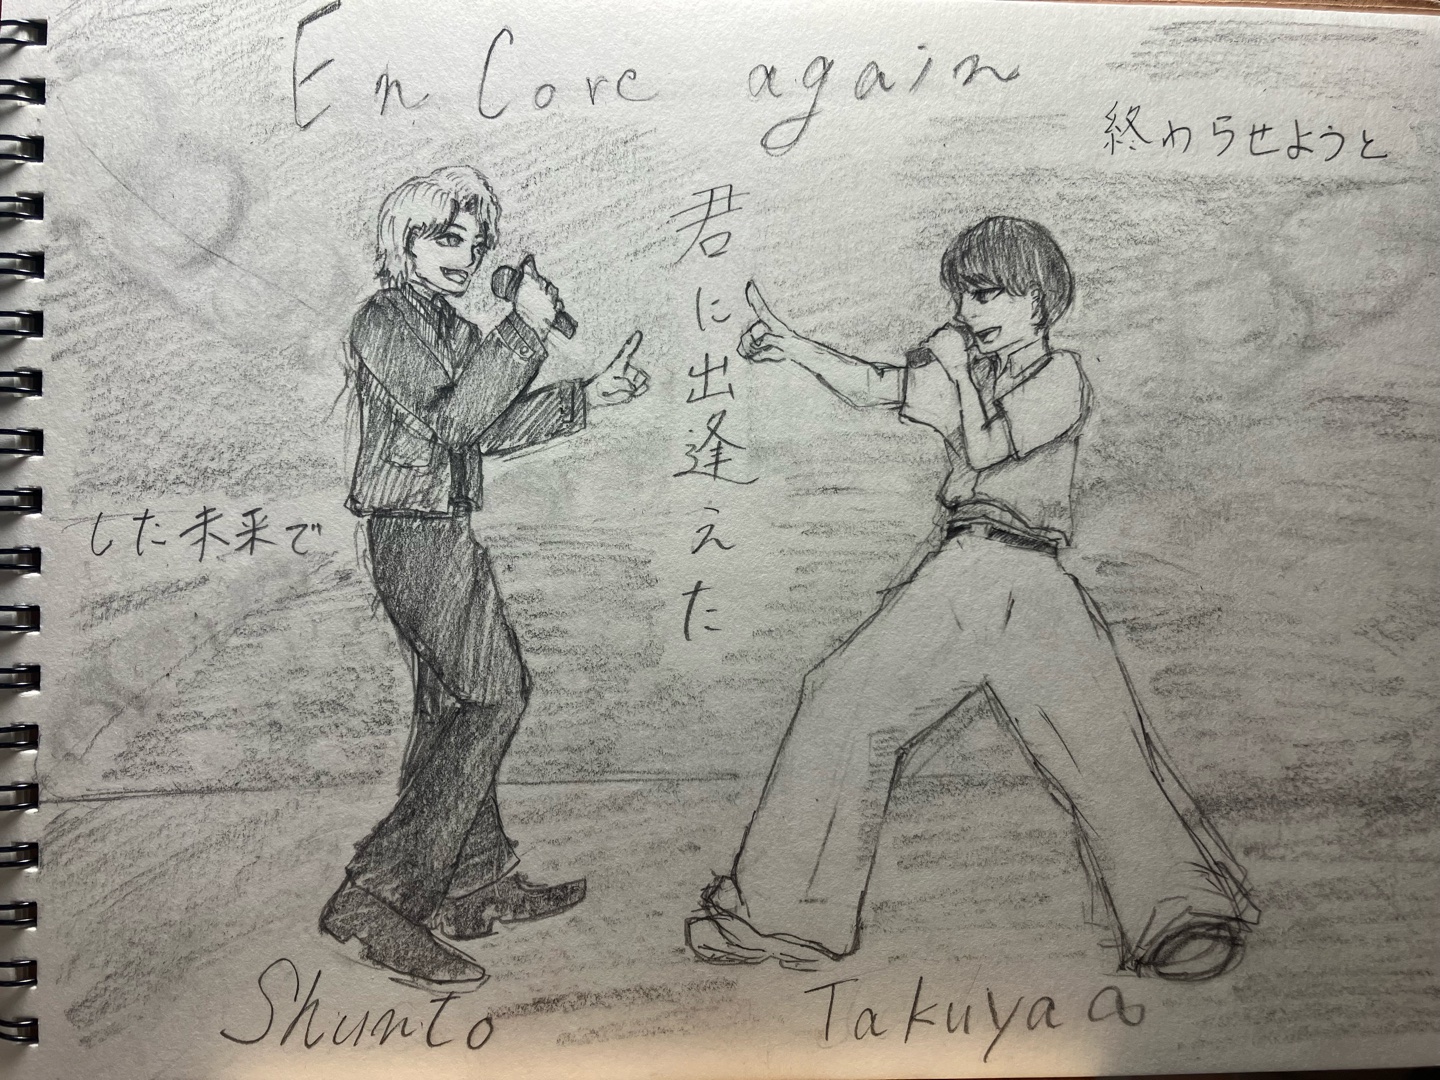 En Core again
終わらせようと
した未来で
君に出逢えた
Shunto
Takuya